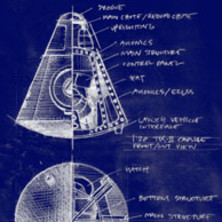 DROGUE
MAIN CHUTE / RESERVE CHUTE
UPRIGHTING
AVIONICS
MAIN STRUCTURE
CONTROL PANEL
SEAT
AVIONICS / ECLSS
LAUNCH VEHICLE
INTERFACE
CAPSULE
FRONT/CUT VIEW
HATCH
BOTTOM STRUCTURE
MAIN STRUCTURE